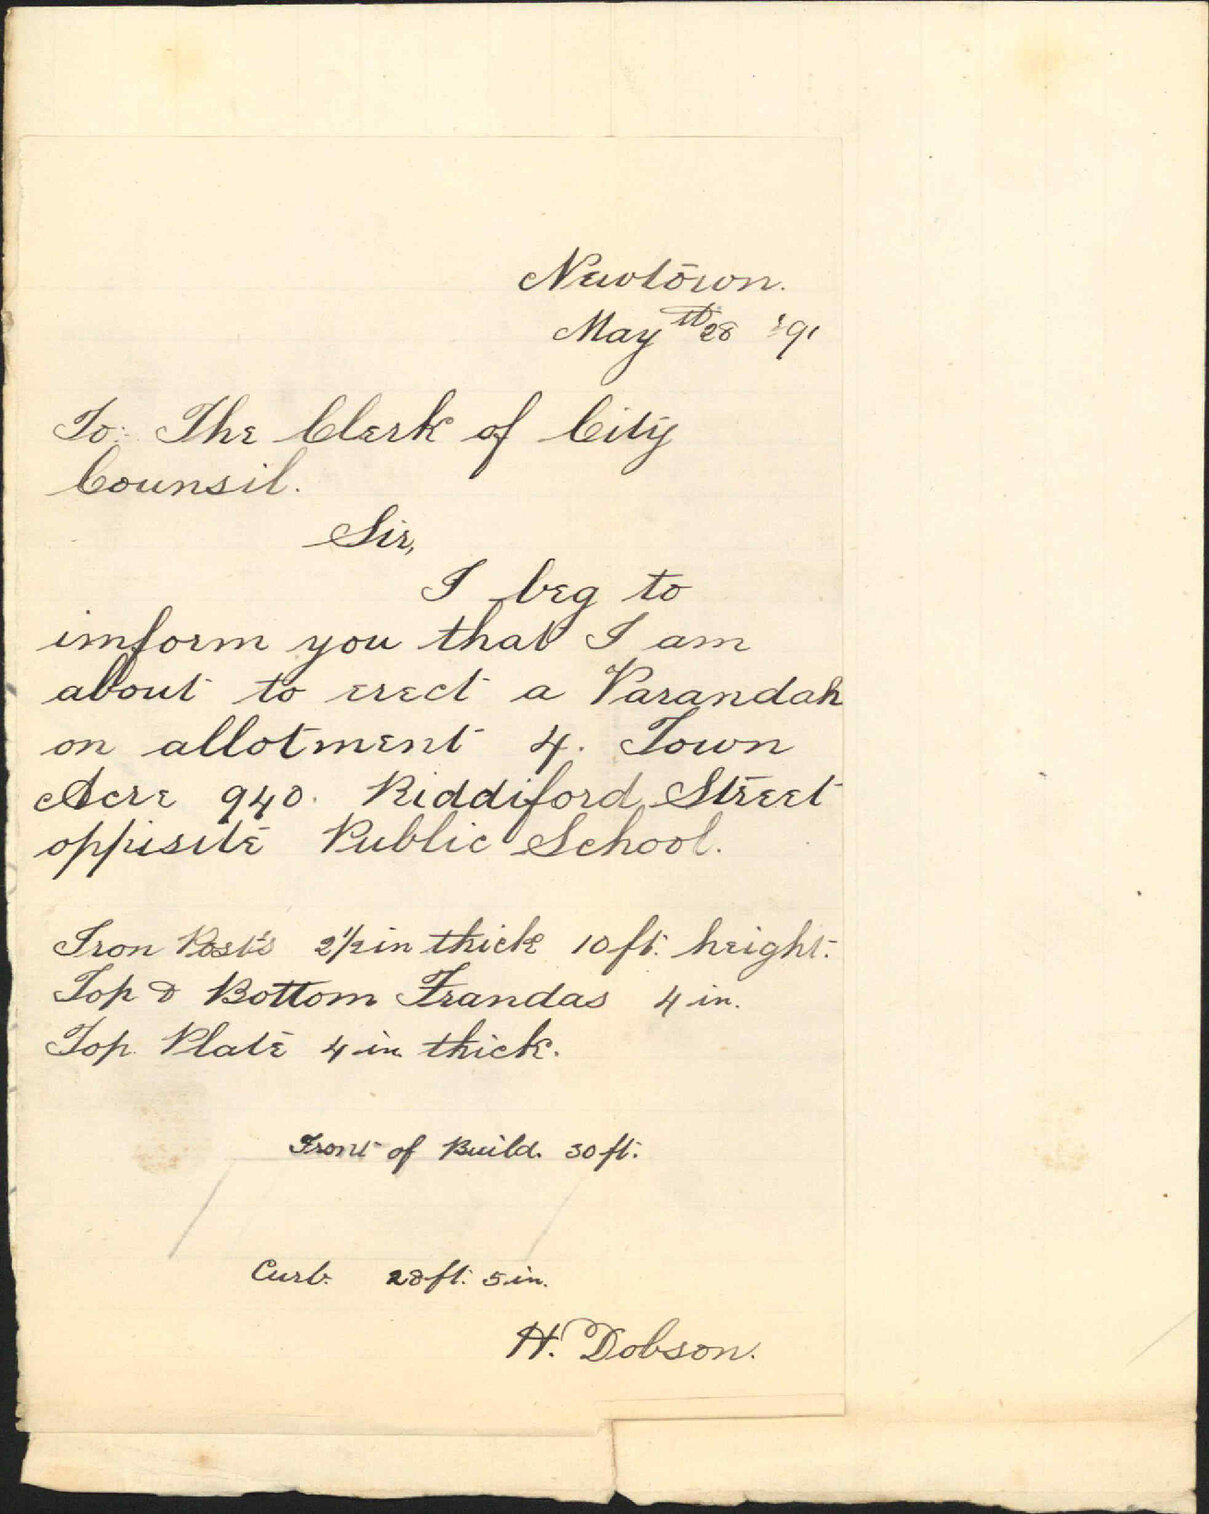 Newtown.
May th 28 '91
To: The Clerk of City
Counsil.
Sir,
I beg to
imform you that I am
about to erect a Varandah
on allotment 4. Town
Acre 940. Riddiford Street
oppisite Public School.
Iron Posts 2½ in thick 10 ft. height.
Top & Bottom Frandas 4 in.
Top Plate 4 in thick.
Front of Build. 30 ft.
Curb. 28 ft. 5 in.
H. Dobson.